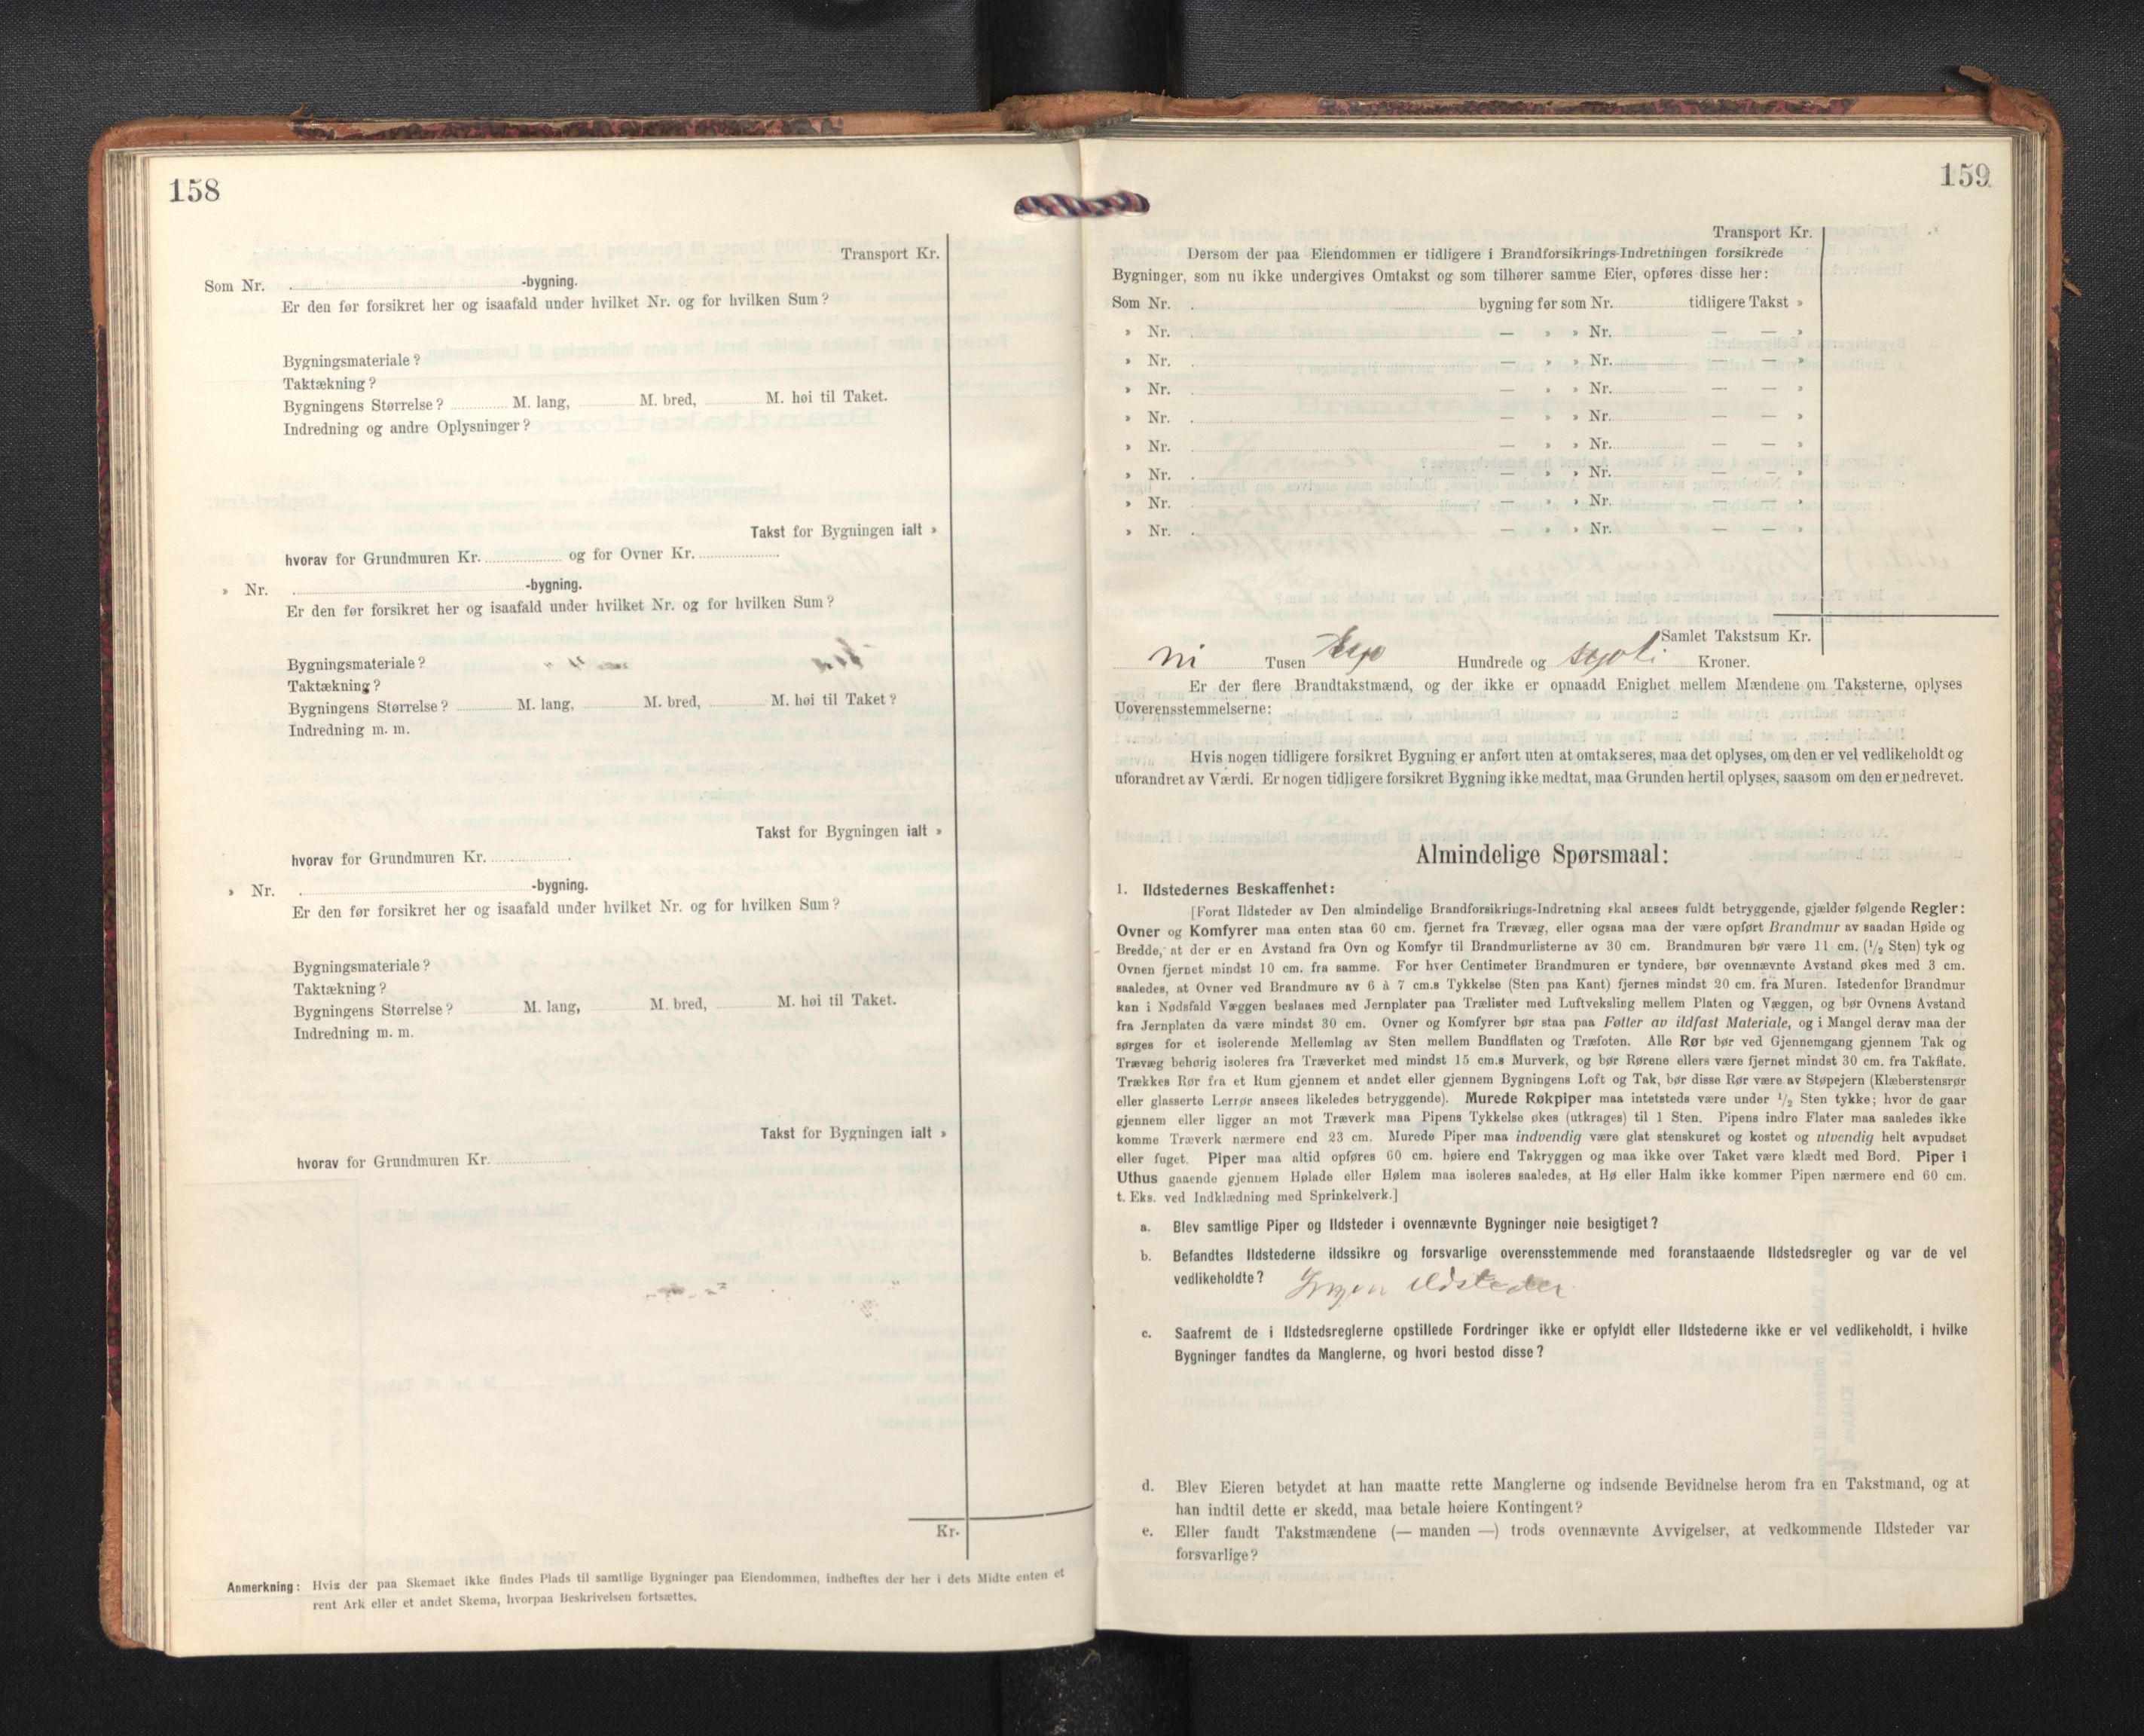 158
Transport Kr.
Som Nr. -bygning.
Er den før forsikret her og isaafald under hvilket Nr. og for hvilken Sum?
Bygningsmateriale?
Taktækning?
Bygningens Størrelse? M. lang, M. bred, M. høi til Taket.
Indredning og andre Oplysninger?
Takst for Bygningen ialt »
hvorav for Grundmuren Kr. og for Ovner Kr.
» Nr. -bygning.
Er den før forsikret her og isaafald under hvilket Nr. og for hvilken Sum?
Bygningsmateriale?
Taktækning?
Bygningens Størrelse? M. lang, M. bred, M. høi til Taket?
Indredning m. m.
Takst for Bygningen ialt »
hvorav for Grundmuren Kr.
» Nr. -bygning.
Er den før forsikret her og isaafald under hvilket Nr. og for hvilken Sum?
Bygningsmateriale?
Taktækning?
Bygningens Størrelse? M. lang, M. bred, M. høi til Taket.
Indredning m. m.
Takst for Bygningen ialt »
hvorav for Grundmuren Kr.
Kr.
Anmerkning: Hvis der paa Skemaet ikke findes Plads til samtlige Bygninger paa Eiendommen, indheftes der her i dets Midte enten et
rent Ark eller et andet Skema, hvorpaa Beskrivelsen fortsættes.
159
Transport Kr.
Dersom der paa Eiendommen er tidligere i Brandforsikrings-Indretningen forsikrede
Bygninger, som nu ikke undergives Omtakst og som tilhører samme Eier, opføres disse her:
Som Nr. bygning før som Nr. tidligere Takst »
» Nr. — » » Nr. — — »
» Nr. — » » Nr. — — »
» Nr. — » » Nr. — — »
» Nr. — » » Nr. — — »
» Nr. — » » Nr. — — »
» Nr. — » » Nr. — — »
» Nr. — » » Nr. — — »
» Nr. — » » Nr. — — »
Samlet Takstsum Kr.
ni Tusen Hundrede og Kroner.
Er der flere Brandtakstmænd, og der ikke er opnaadd Enighet mellem Mændene om Taksterne, oplyses
Uoverensstemmelserne:
Hvis nogen tidligere forsikret Bygning er anført uten at omtakseres, maa det oplyses, om den er vel vedlikeholdt og
uforandret av Værdi. Er nogen tidligere forsikret Bygning ikke medtat, maa Grunden hertil oplyses, saasom om den er nedrevet.
Almindelige Spørsmaal:
1. Ildstedernes Beskaffenhet:
[Forat Ildsteder av Den almindelige Brandforsikrings-Indretning skal ansees fuldt betryggende, gjælder følgende Regler:
Ovner og Komfyrer maa enten staa 60 cm. fjernet fra Trævæg, eller ogsaa maa der være opført Brandmur av saadan Høide og
Bredde, at der er en Avstand fra Ovn og Komfyr til Brandmurlisterne av 30 cm. Brandmuren bør være 11 cm. (1/2 Sten) tyk og
Ovnen fjernet mindst 10 cm. fra samme. For hver Centimeter Brandmuren er tyndere, bør ovennævnte Avstand økes med 3 cm.
saaledes, at Ovner ved Brandmure av 6 à 7 cm.s Tykkelse (Sten paa Kant) fjernes mindst 20 cm. fra Muren. Istedenfor Brandmur
kan i Nødsfald Væggen beslaaes med Jernplater paa Trælister med Luftveksling mellem Platen og Væggen, og bør Ovnens Avstand
fra Jernplaten da være mindst 30 cm. Ovner og Komfyrer bør staa paa Føtter av ildfast Materiale, og i Mangel derav maa der
sørges for et isolerende Mellemlag av Sten mellem Bundflaten og Træfoten. Alle Rør bør ved Gjennemgang gjennem Tak og
Trævæg behørig isoleres fra Træverket med mindst 15 cm.s Murverk, og bør Rørene ellers være fjernet mindst 30 cm. fra Takflate.
Trækkes Rør fra et Rum gjennem et andet eller gjennem Bygningens Loft og Tak, bør disse Rør være av Støpejern (Klæberstensrør
eller glasserte Lerrør ansees likeledes betryggende). Murede Røkpiper maa intetsteds være under 1/2 Sten tykke; hvor de gaar
gjennem eller ligger an mot Træverk maa Pipens Tykkelse økes (utkrages) til 1 Sten. Pipens indre Flater maa saaledes ikke
komme Træverk nærmere end 23 cm. Murede Piper maa indvendig være glat stenskuret og kostet og utvendig helt avpudset
eller fuget. Piper maa altid opføres 60 cm. høiere end Takryggen og maa ikke over Taket være klædt med Bord. Piper i
Uthus gaaende gjennem Hølade eller Hølem maa isoleres saaledes, at Hø eller Halm ikke kommer Pipen nærmere end 60 cm.
t. Eks. ved Indklædning med Sprinkelverk.]
a. Blev samtlige Piper og Ildsteder i ovennævnte Bygninger nøie besigtiget?
b. Befandtes Ildstederne ildssikre og forsvarlige overensstemmende med foranstaaende Ildstedsregler og var de vel
vedlikeholdte? Ingen ildsteder.
c. Saafremt de i Ildstedsreglerne opstillede Fordringer ikke er opfyldt eller Ildstederne ikke er vel vedlikeholdt, i hvilke
Bygninger fandtes da Manglerne, og hvori bestod disse?
d. Blev Eieren betydet at han maatte rette Manglerne og indsende Bevidnelse herom fra en Takstmand, og at
han indtil dette er skedd, maa betale høiere Kontingent?
e. Eller fandt Takstmændene (— manden —) trods ovennævnte Avvigelser, at vedkommende Ildsteder var
forsvarlige?